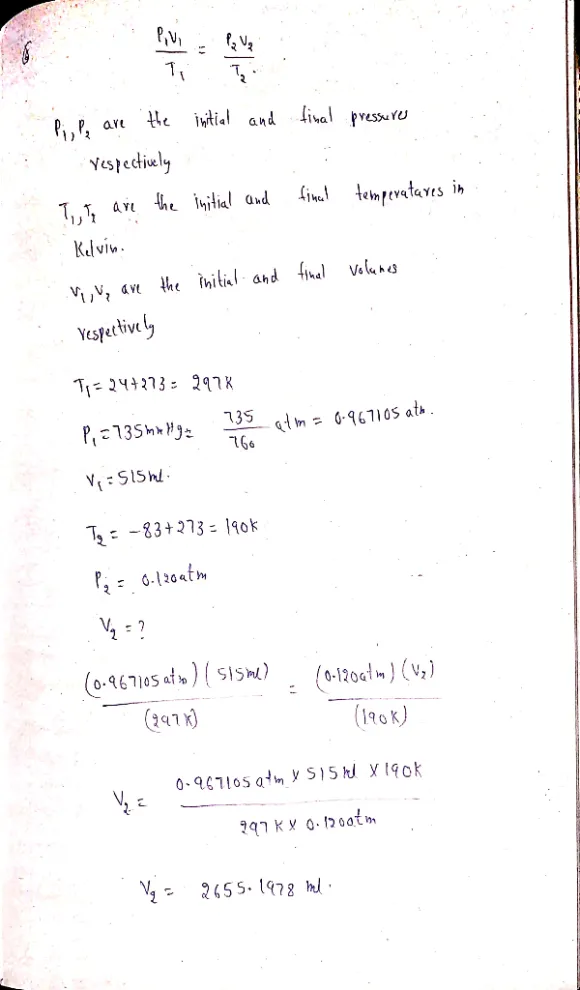 6
P₁V₁/T₁ = P₂V₂/T₂.
P₁, P₂ are the initial and final pressures
respectively
T₁, T₂ are the initial and final temperatures in
Kelvin.
V₁, V₂ are the initial and final volumes
respectively
T₁ = 24+273 = 297K
P₁ = 735mmHg = 735/760 atm = 0.967105 atm.
V₁ = 515ml.
T₂ = -83+273 = 190K
P₂ = 0.120atm
V₂ = ?
(0.967105 atm)(515ml)/(297K) = (0.120atm)(V₂)/(190K)
V₂ = 0.967105 atm x 515ml x 190K/297K x 0.120atm
V₂ = 2655.1978 ml.